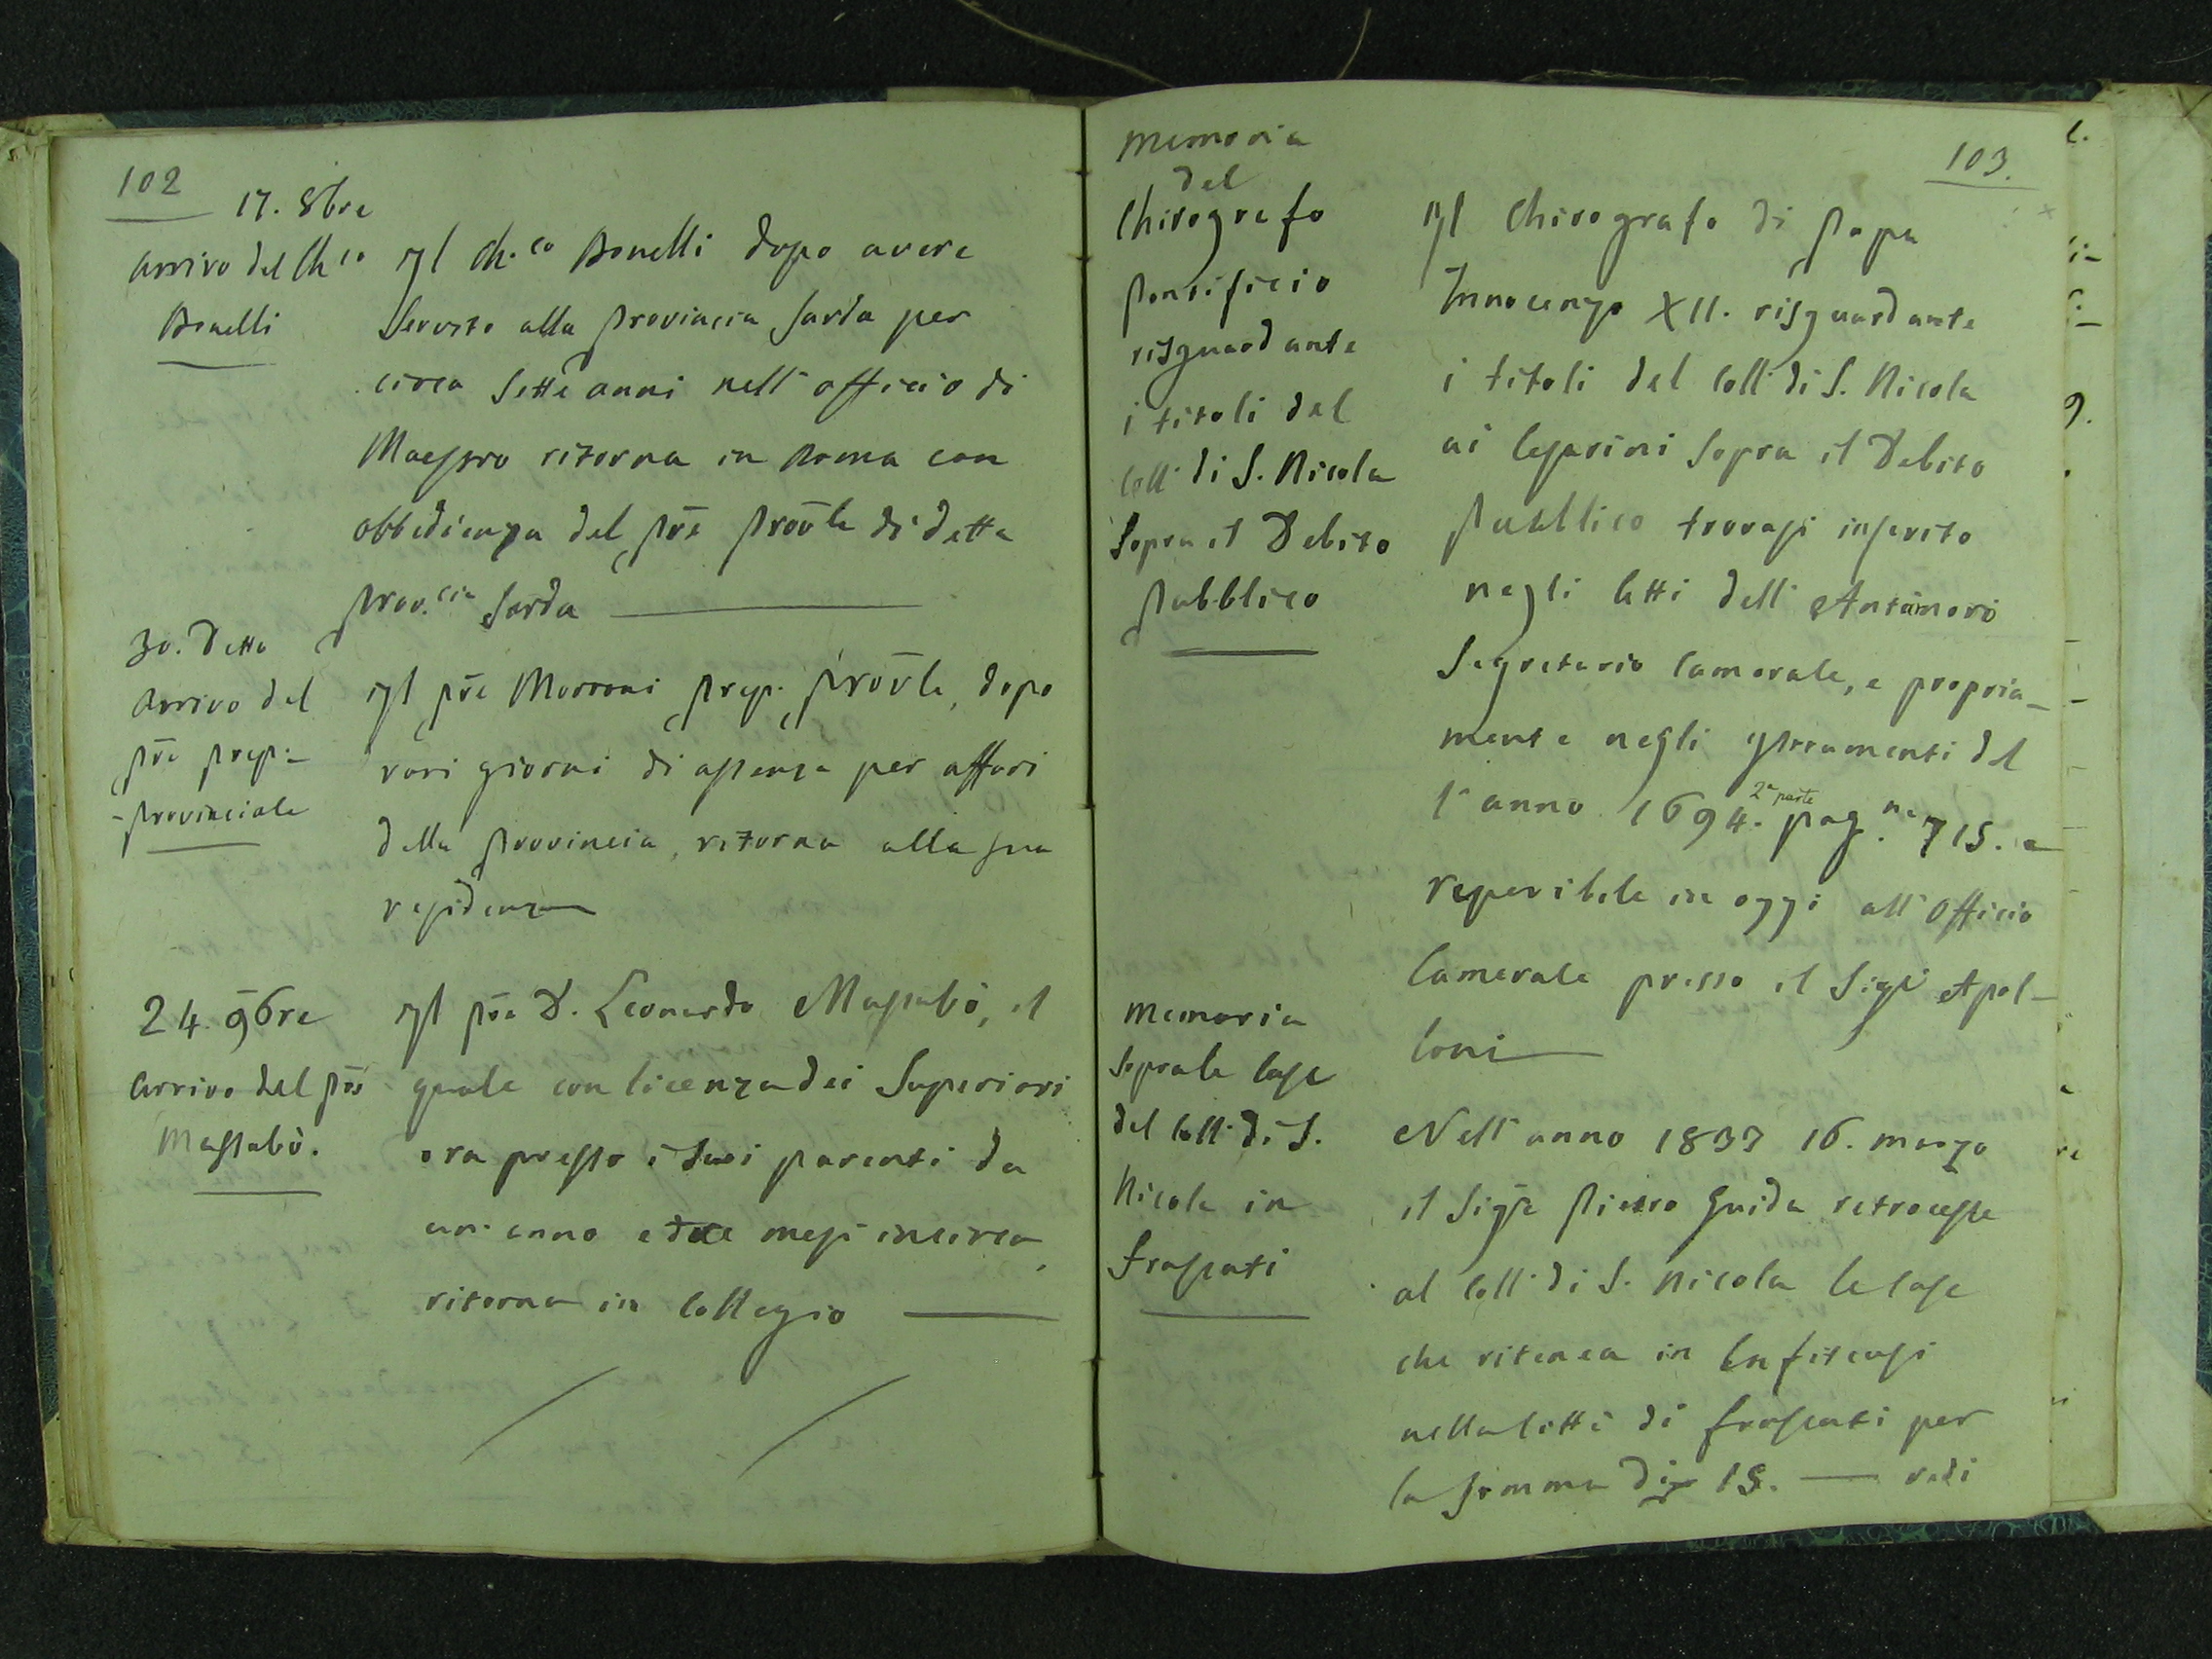 102
17. 8bre
Arrivo del Ch.co
Bonelli
Il Ch.co Bonelli dopo avere
Servito alla Provincia Sarda per
circa Sette anni nell'officio di
Maestro ritorna in Roma con
obbedienza del Pre Provle di detta
Prov.cia Sarda
30. Detto
Arrivo del
Pre Prep.
Provinciale
Il Pre Morroni Prep. Provle, dopo
vari giorni di assenza per affari
della Provincia, ritorna alla sua
residenza
24. 9bre
Arrivo del Pre
Massabò.
Il Pre D. Leonardo Massabò, il
quale con licenza dei Superiori
era presso i Suoi parenti da
un anno e due mesi incirca,
ritorna in Collegio
103.
Memoria
del
Chirografo
Pontificio
risguardante
i titoli del
Coll. di S. Nicola
Sopra il Debito
Pubblico
Il Chirografo di Papa
Innocenzo XII. risguardante
i titoli del Coll. di S. Nicola
ai Cesarini Sopra il Debito
Pubblico trovasi inserito
negli Atti dell' Antamori
Segretario Camerale, e propria-
mente negli Istrumenti del
l' anno 1694. 2a parte pag.na 715. e
reperibile in oggi all' Officio
Camerale presso il Sigr Apol-
loni
Memoria
Sopra le Case
del Coll. di S.
Nicola in
Frascati
Nell' anno 1837 16. marzo
il Sigre Pietro Guida retrocesse
al Coll. di S. Nicola le Case
che ritenea in Enfiteusi
nella Città di Frascati per
la Somma di 15. vedi